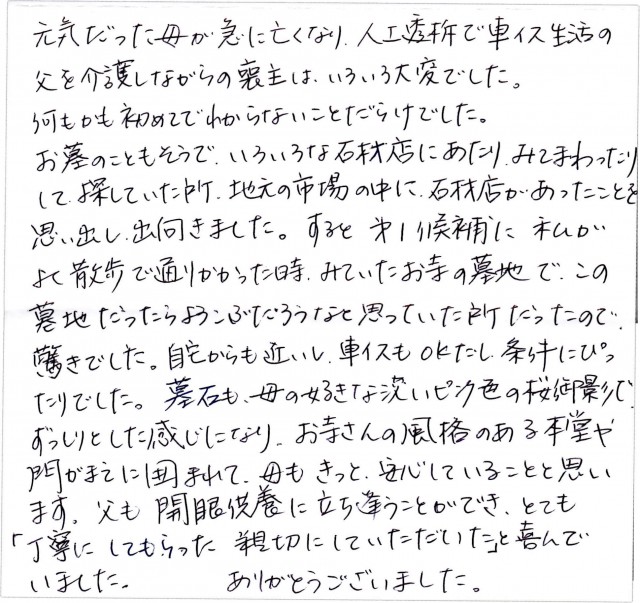 元気だった母が急に亡くなり、人工透析で車イス生活の
父を介護しながらの喪主は、いろいろ大変でした。
何もかも初めてでわからないことだらけでした。
お墓のこともそうで、いろいろな石材店にあたり、みてまわったり
して探していた所、地元の市場の中に、石材店があったことを
思い出し、出向きました。すると 第1候補に 私が
よく散歩で通りかかった時、みていたお寺の墓地で、この
墓地だったらよろこぶだろうなと思っていた所だったので、
驚きでした。自宅からも近いし、車イスもOKだし、条件にぴっ
たりでした。墓石も、母の好きな淡いピンク色の桜御影で、
ずっしりとした感じになり、お寺さんの風格のある本堂や
門がまえに囲まれて、母もきっと、安心していることと思い
ます。父も開眼供養に立ち逢うことができ、とても
「丁寧にしてもらった 親切にしていただいた」と喜んで
いました。 ありがとうございました。